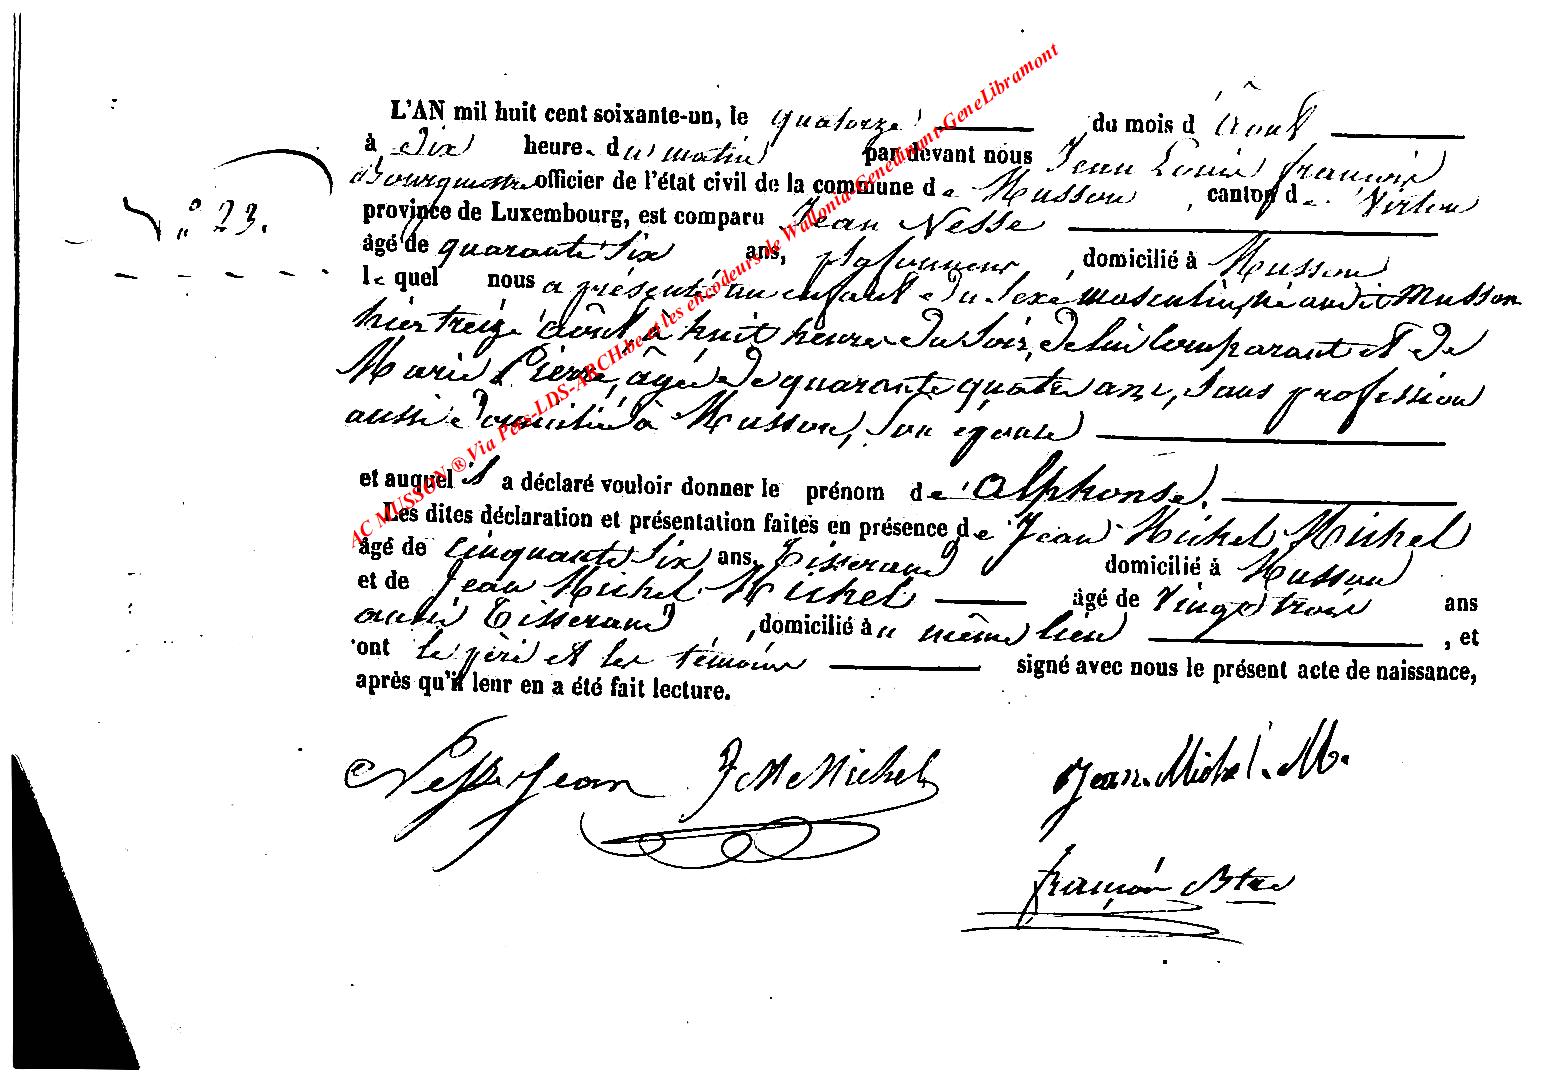 L'AN mil huit cent soixante-un, le quatorze du mois d'Août
à dix heures du matin par devant nous Jean Louis françois
Bourgmestre officier de l'état civil de la commune de Musson, canton de Virton
N° 23.
province de Luxembourg, est comparu Jean Nesse
âgé de quarante six ans, plafonneur, domicilié à Musson
lequel nous a présenté un enfant du sexe masculin, né audit Musson
hier treize août, à huit heures du soir, de lui comparant et de
Marie Pierre, âgée de quarante quatre ans, sans profession
aussi domiciliée à Musson, son épouse
et auquel il a déclaré vouloir donner le prénom de Alphonse.
Les dites déclaration et présentation faites en présence de Jean Michel Michel
âgé de cinquante six ans, Tisserand domicilié à Musson
et de Jean Michel Michel âgé de vingt trois ans
aussi Tisserand, domicilié au même lieu, et
ont le père et les témoins signé avec nous le présent acte de naissance,
après qu'il leur en a été fait lecture.
Nesse Jean J M Michel Jean-Michel. M.
françois Btre
AC MUSSON ® Via Pets-LDS-ARCH.be et les encodeurs de Wallonia-Genedinant-GeneLibramont